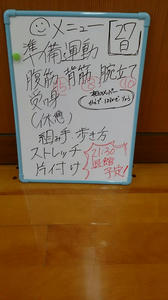 メニュー
27日
準備運動
腹筋 背筋 腕立て
(休憩)
組み手 歩き方
ストレッチ
片付け
21:30
退館
予定!